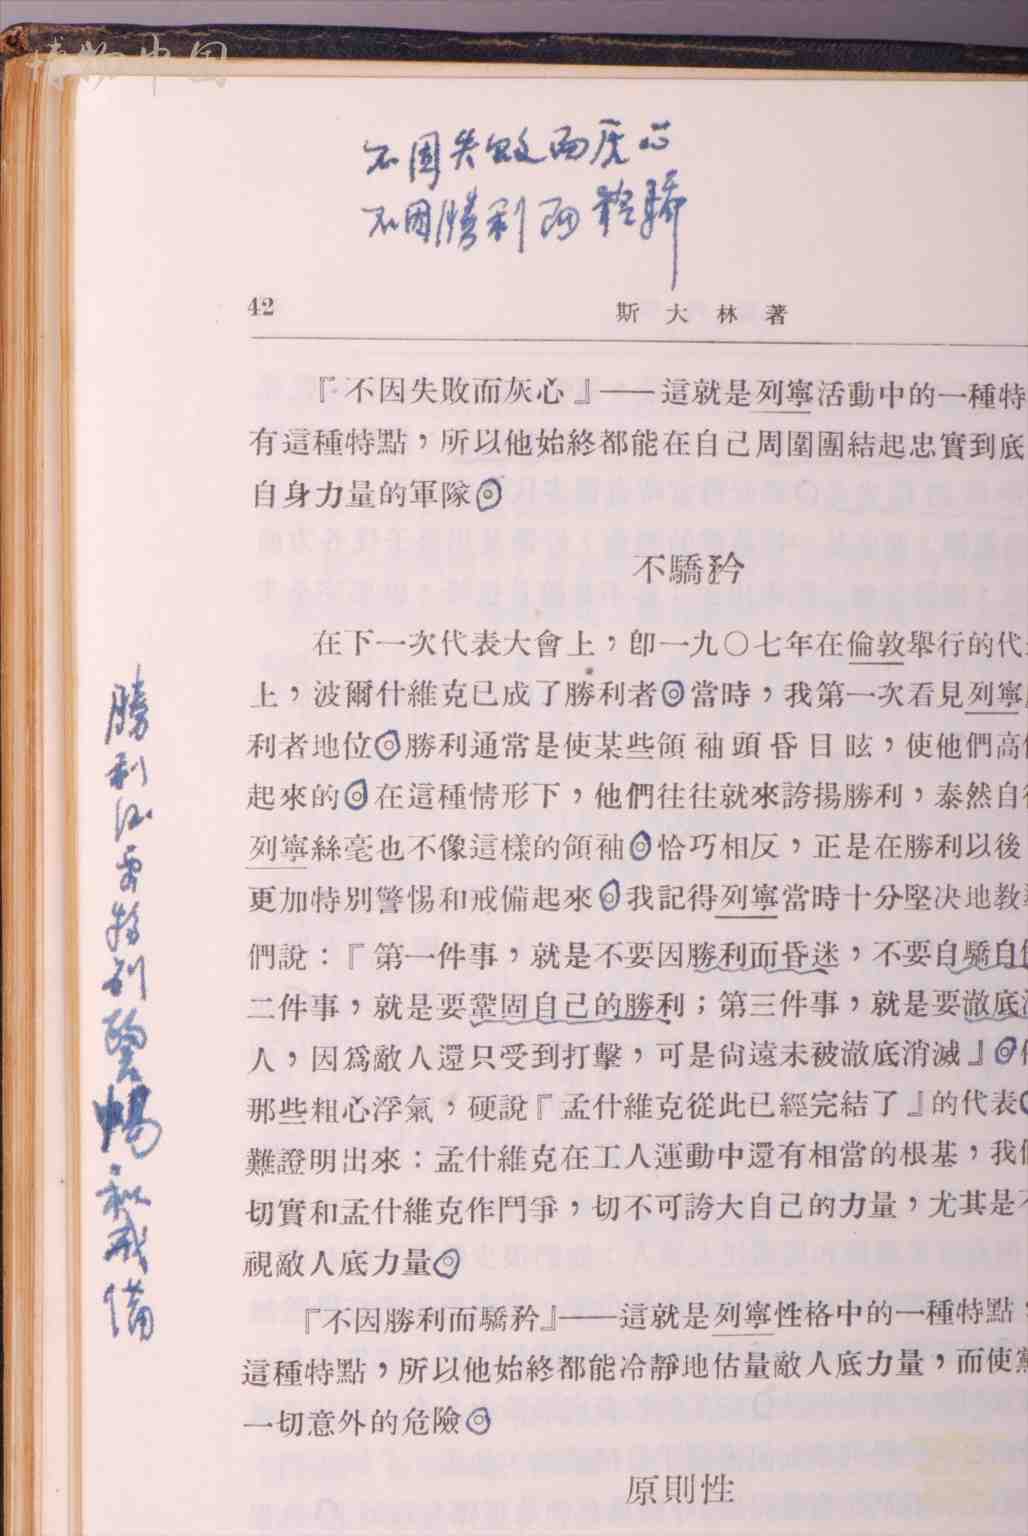 博物中国
不因失敗而灰心
不因勝利而驕
42
斯大林著
『不因失敗而灰心』——這就是列寧活動中的一種特
有這種特點，所以他始終都能在自己周圍團結起忠實到底
自身力量的軍隊。
不驕矜
在下一次代表大會上，卽一九〇七年在倫敦舉行的代
上，波爾什維克已成了勝利者。當時，我第一次看見列寧
利者地位。勝利通常是使某些領袖頭昏目眩，使他們高
起來的。在這種情形下，他們往往就來誇揚勝利，泰然自
列寧絲毫也不像這樣的領袖。恰巧相反，正是在勝利以後
更加特別警惕和戒備起來。我記得列寧當時十分堅决地教
們說：『第一件事，就是不要因勝利而昏迷，不要自驕自
二件事，就是要鞏固自己的勝利；第三件事，就是要澈底
人，因爲敵人還只受到打擊，可是尙遠未被澈底消滅』。
那些粗心浮氣，硬說『孟什維克從此已經完結了』的代表
難證明出來：孟什維克在工人運動中還有相當的根基，我
切實和孟什維克作鬥爭，切不可誇大自己的力量，尤其是
視敵人底力量。
『不因勝利而驕矜』——這就是列寧性格中的一種特點
這種特點，所以他始終都能冷靜地估量敵人底力量，而使黨
一切意外的危險。
原則性
勝利後要特別警惕和戒備